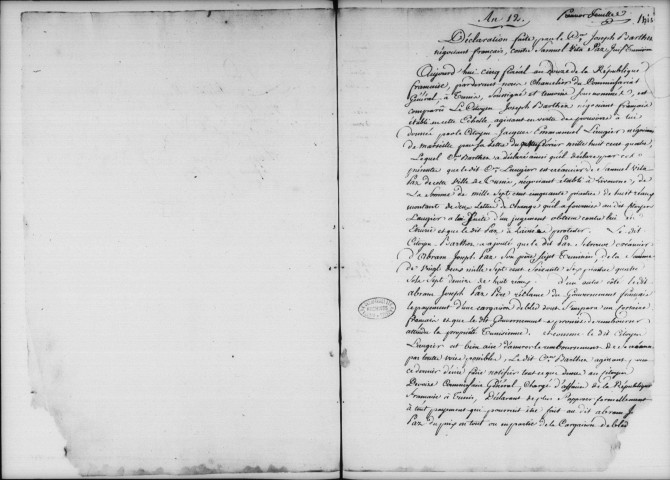 An 12. Premier Feuillet
Déclaration faite par le Cen. Joseph Barthes
négociant français, contre Samuel Vita Paz Juif Tunisien
Aujourd'hui cinq floréal an Douze de la République
française, pardevant nous Chancelier du Commissariat
Général, à Tunis, Soussigné et témoins
comparu Le Citoyen Joseph Barthes négociant français
établi en cette Echelle, agissant en vertu des pouvoirs à lui
donnés par le Citoyen Jacques Emmanuel Laugier négociant
de marseille par Sa lettre du février mille huit cent quatre,
Lequel Cen. Barthes a déclaré ainsi qu'il déclare par ces
présentes que le dit Cen. Laugier est créancier de Samuel Vita
Paz de cette Ville de Tunis, négociant établi à Livourne, de
La Somme de mille Sept cent cinquante piastres de huit réaux
montant de deux Lettres de Change qu'il a fournies au dit Citoyen
Laugier à la Suite d'un jugement obtenu contre lui
et que le dit Paz a laissé protester. Le dit
Citoyen Barthes a ajouté que le dit Paz Se trouve créancier
d'Abram Joseph Paz Son père, Sujet Tunisien, de la Somme
de Vingt deux mille Sept cent Soixante Sept piastres quatre
Sols Sept deniers de huit réaux. d'un autre côté le dit
abram Joseph Paz Père réclame du Gouvernement français
le payement d'une cargaison de bled dont S'empara un corsaire
français et que le dit Gouvernement a promis de rembourser
attendu la propriété Tunisienne. et comme le dit Citoyen
Laugier est bien aise d'assurer le remboursement de Sa créance
par toutes voies possibles, Le dit Cen. Barthes agissant,
ce dernier désire faire notifier tout ce que dessus au citoyen
Devoize Commissaire Général, Chargé d'affaires de la République
française à Tunis, Déclarant de plus S'opposer formellement
à tout payement qui pourrait être fait au dit abram J.
Paz du prix en tout ou en partie de la Cargaison de bled